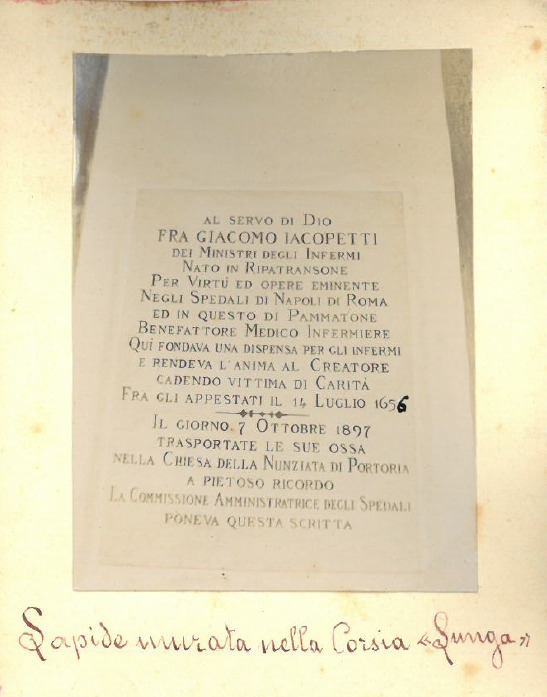 AL SERVO DI DIO
FRA GIACOMO IACOPETTI
DEI MINISTRI DEGLI INFERMI
NATO IN RIPATRANSONE
PER VIRTÙ ED OPERE EMINENTE
NEGLI SPEDALI DI NAPOLI DI ROMA
ED IN QUESTO DI PAMMATONE
BENEFATTORE MEDICO INFERMIERE
QUI FONDAVA UNA DISPENSA PER GLI INFERMI
E RENDEVA L'ANIMA AL CREATORE
CADENDO VITTIMA DI CARITÀ
FRA GLI APPESTATI IL 14 LUGLIO 1656
IL GIORNO 7 OTTOBRE 1897
TRASPORTATE LE SUE OSSA
NELLA CHIESA DELLA NUNZIATA DI PORTORIA
A PIETOSO RICORDO
LA COMMISSIONE AMMINISTRATRICE DEGLI SPEDALI
PONEVA QUESTA SCRITTA
Lapide murata nella Corsia «Lunga»